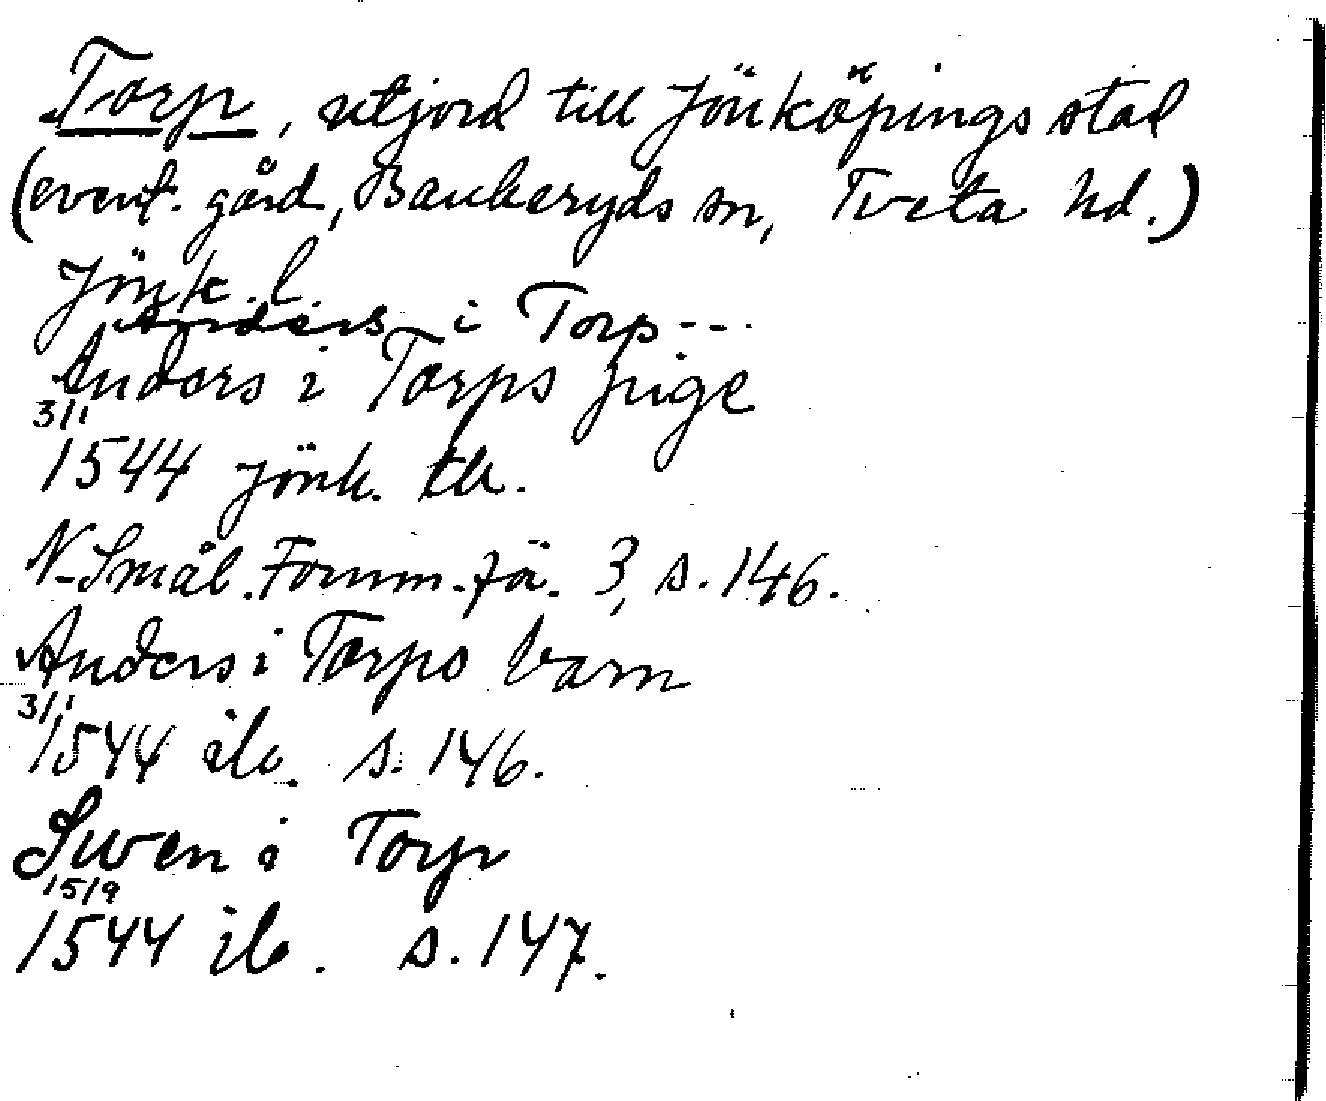 Torp, utjord till Jönköpings stad
(event. gård, Bankeryds sn, Tveta hd.)
Jönk. l.
Anders i Torp ---
Anders i Torps pige
3/1
1544 Jönk. tb.
N. Smål. Fornm.-fö. 3, s. 146.
Anders i Torps barn
3/1
1544 ib. s. 146.
Swen i Torp
15/9
1544 ib. s. 147.